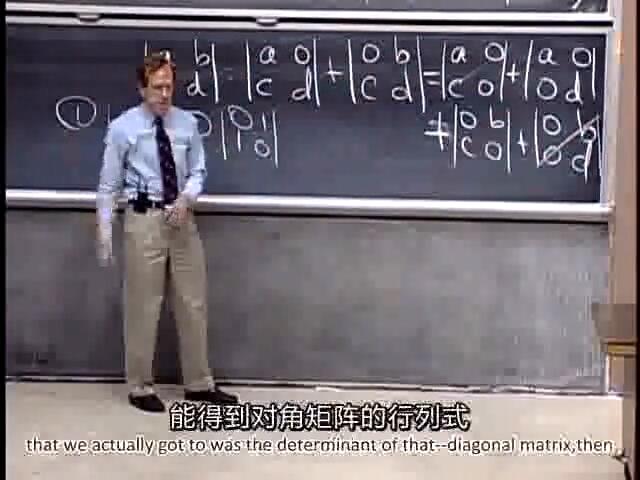 b | = | a 0 | + | 0 b | = | a 0 | + | a 0 |
d | | c d | | c d | | c 0 | | 0 d |
① | 0 1 | + | 0 b | + | 0 b |
| 1 0 | | c 0 | | 0 d |
能得到对角矩阵的行列式
that we actually got to was the determinant of that--diagonal matrix,then